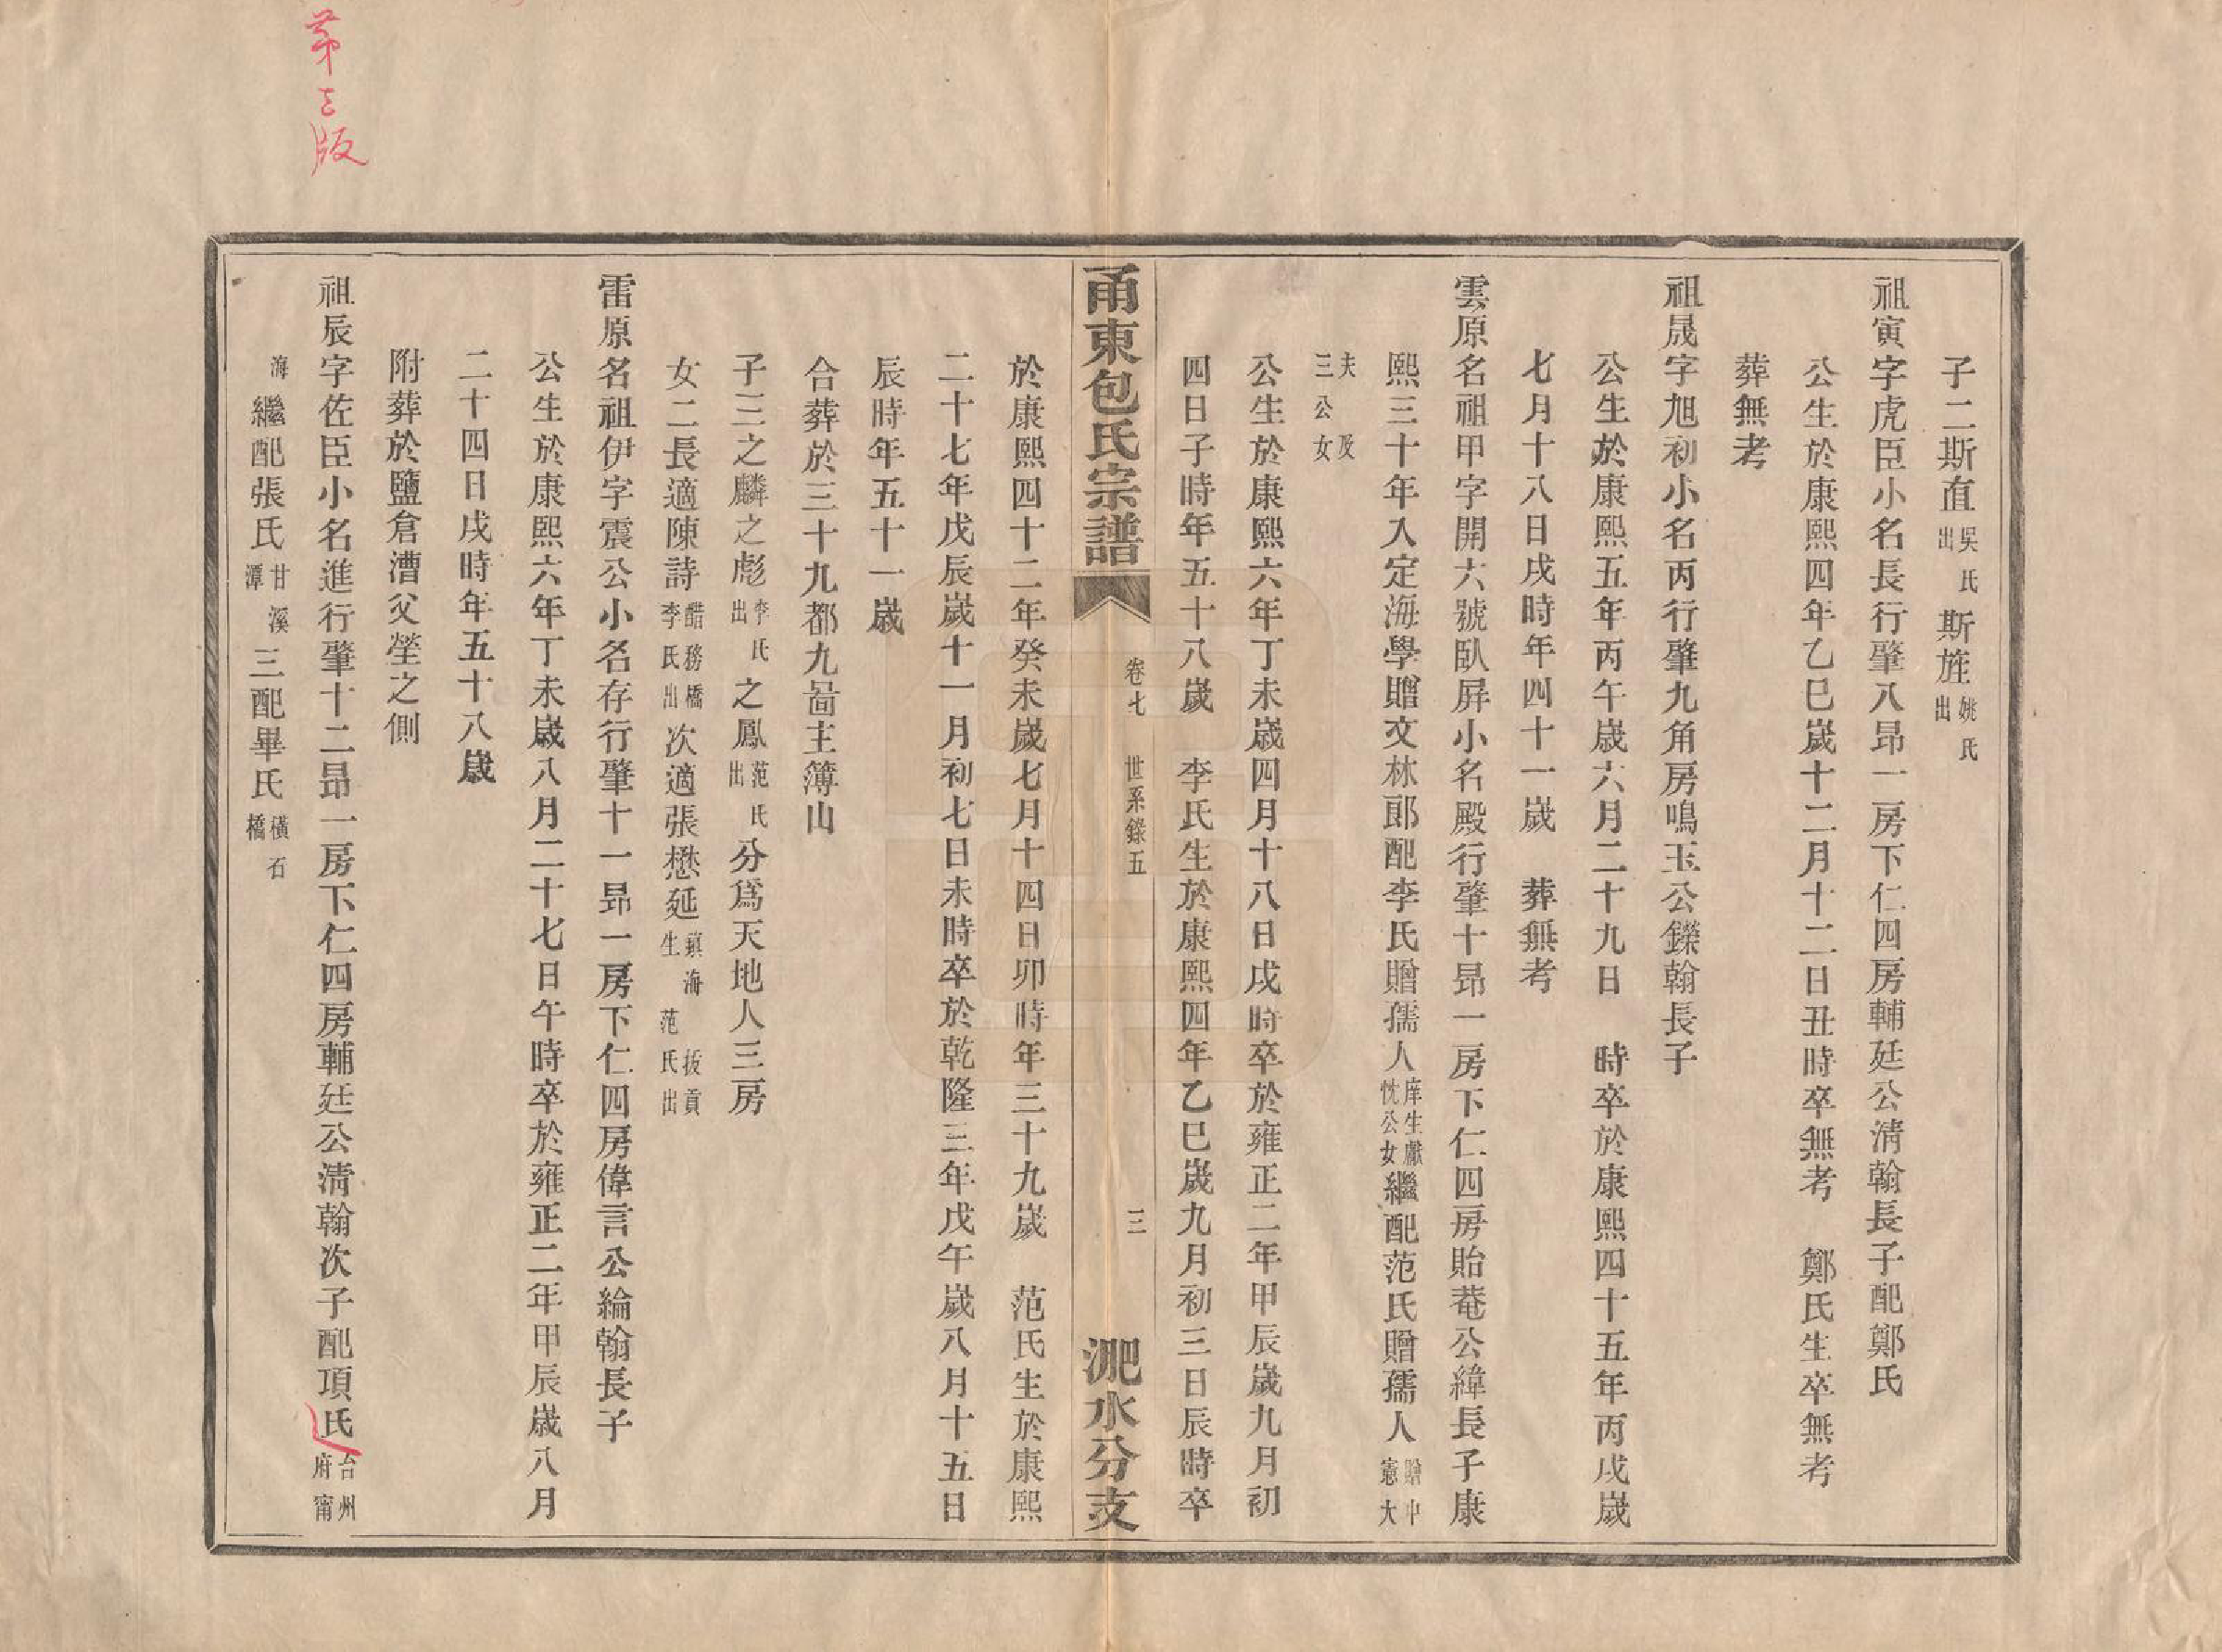 子二斯直吳氏出斯旌姚氏出
祖寅字虎臣小名長行肇八昂一房下仁四房輔廷公淸翰長子配鄭氏
公生於康熙四年乙巳歲十二月十二日丑時卒無考　鄭氏生卒無考
葬無考
祖晟字旭初小名丙行肇九角房鳴玉公鑅翰長子
公生於康熙五年丙午歲六月二十九日　時卒於康熙四十五年丙戌歲
七月十八日戌時年四十一歲　葬無考
雲原名祖甲字開六號臥屛小名殿行肇十昂一房下仁四房貽菴公緯長子康
熙三十年入定海學贈文林郞配李氏贈孺人庠生獻忱公女繼配范氏贈孺人贈中憲大
夫及三公女
公生於康熙六年丁未歲四月十八日戌時卒於雍正二年甲辰歲九月初
四日子時年五十八歲　李氏生於康熙四年乙巳歲九月初三日辰時卒
甬東包氏宗譜　卷七　世系錄五　三　淝水分支
於康熙四十二年癸未歲七月十四日卯時年三十九歲　范氏生於康熙
二十七年戊辰歲十一月初七日未時卒於乾隆三年戊午歲八月十五日
辰時年五十一歲
合葬於三十九都九啚主簿山
子三之麟之彪李氏出之鳳范氏出分爲天地人三房
女二長適陳詩醋務橋李氏出次適張懋延鎮海拔貢生范氏出
雷原名祖伊字震公小名存行肇十一昂一房下仁四房偉言公綸翰長子
公生於康熙六年丁未歲八月二十七日午時卒於雍正二年甲辰歲八月
二十四日戌時年五十八歲
附葬於鹽倉漕父塋之側
祖辰字佐臣小名進行肇十二昂一房下仁四房輔廷公淸翰次子配項氏台州府甯
海繼配張氏甘溪潭三配畢氏橫石橋
第三版